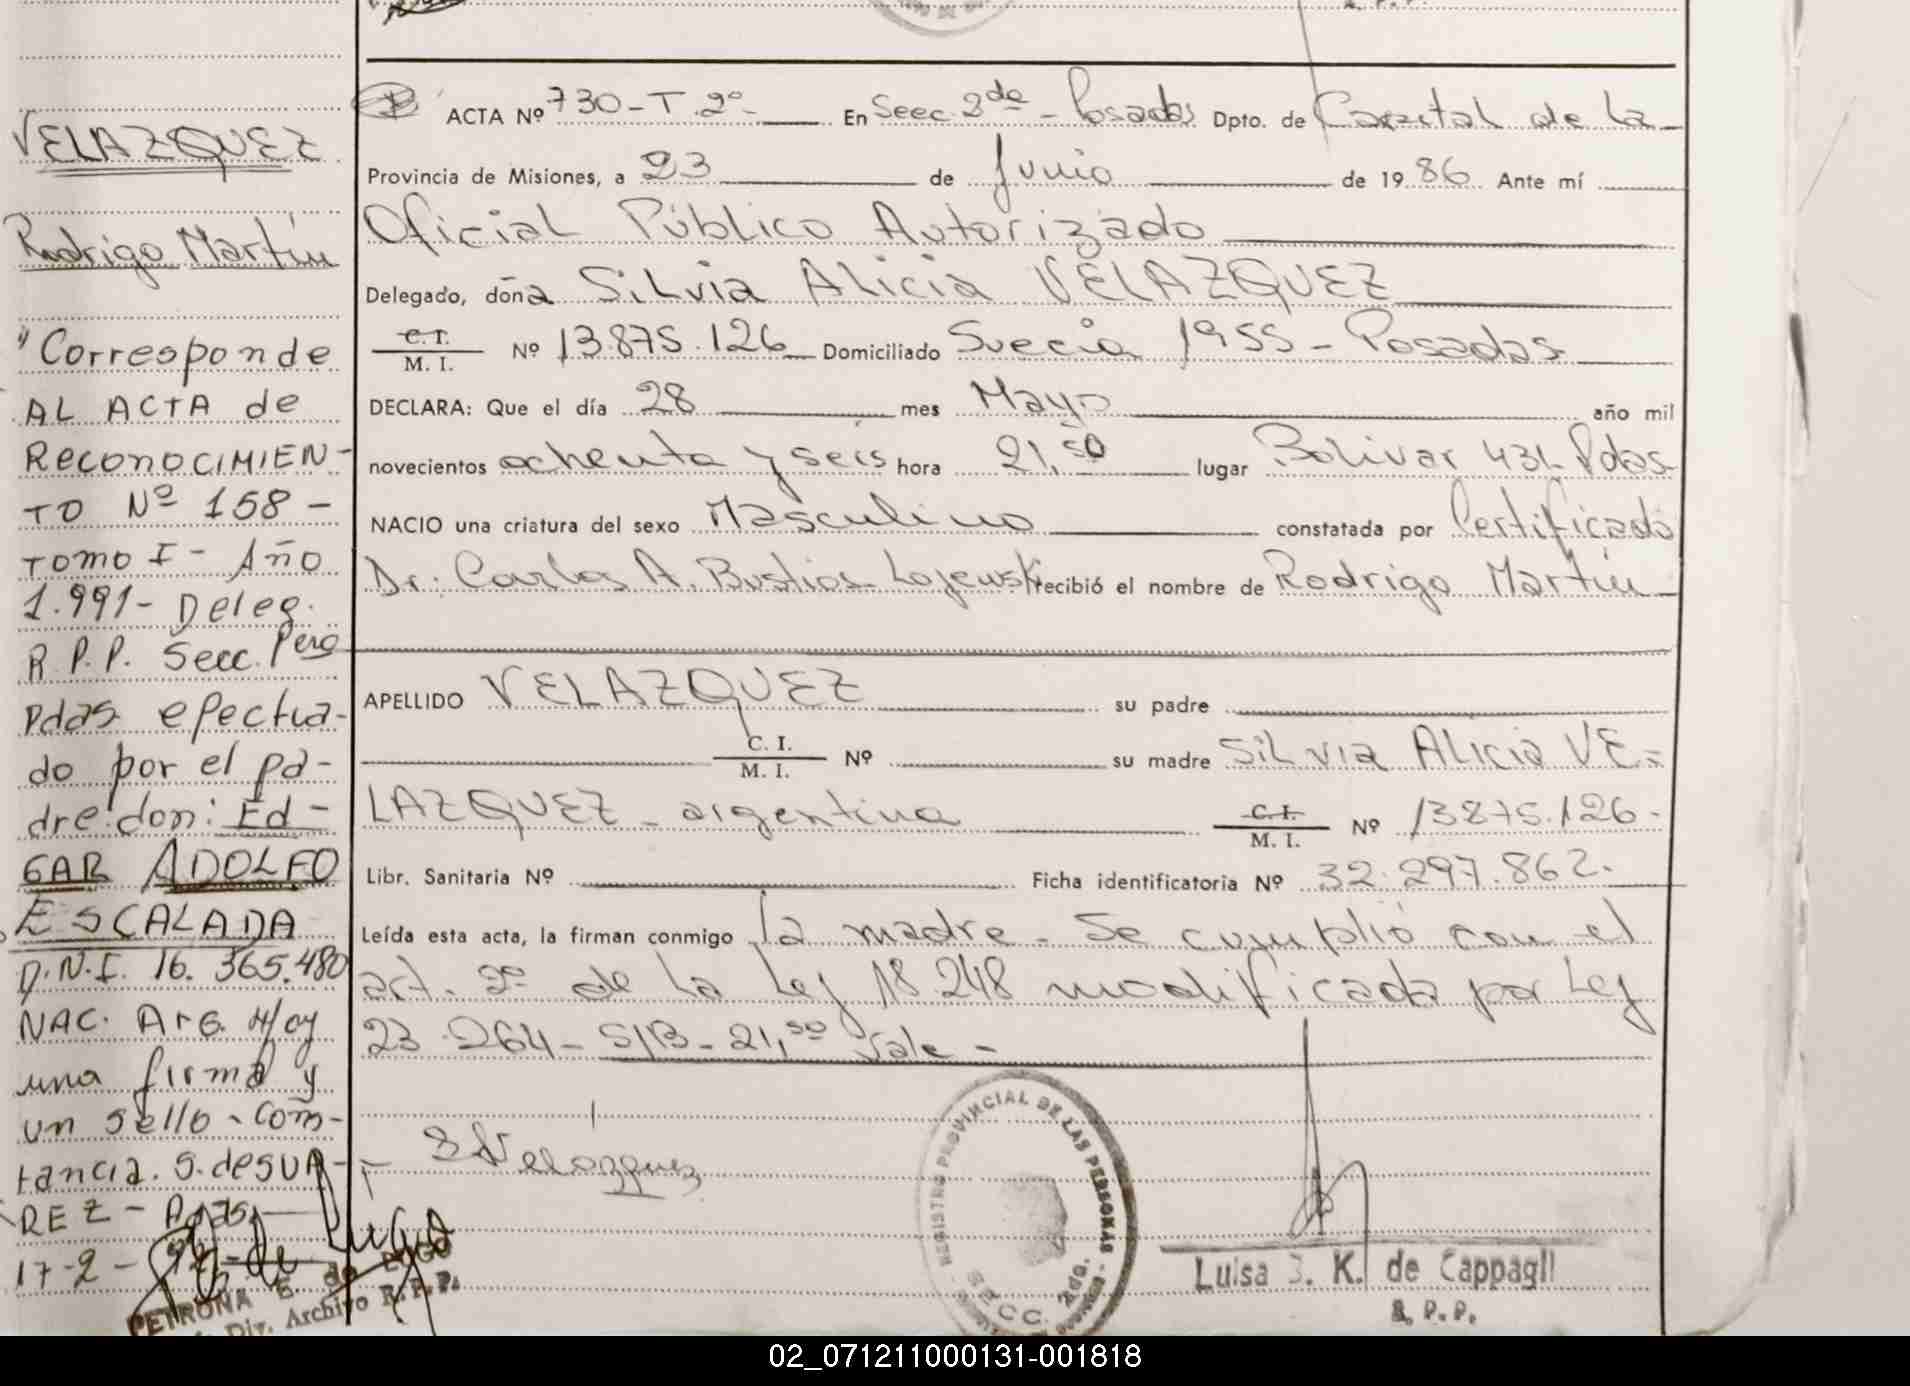 VELAZQUEZ
Rodrigo Martín
"Corresponde
AL ACTA de
RECONOCIMIEN-
TO Nº 158 -
TOMO I - Año
1.991 - Deleg.
R.P.P. Secc. 1era
Pdas efectua-
do por el pa-
dre don: Ed-
GAR ADOLFO
ESCALADA
D.N.I. 16.365.480
NAC. Arg. H/oy
una firma y
un sello - Cons-
tancia. S. de SUA-
REZ - Pdas.
17-2-
PETRONA E. de LUGO
Div. Archivo R.P.P.
ACTA Nº 730 - T. 2º - En Secc. 2da - Posadas Dpto. de Capital de la
Provincia de Misiones, a 23 de Junio de 1986 Ante mí
Oficial Público Autorizado
Delegado, doña Silvia Alicia VELAZQUEZ
C. I. / M. I. Nº 13.875.126 Domiciliado Suecia 1955 - Posadas
DECLARA: Que el día 28 mes Mayo año mil
novecientos ochenta y seis hora 21,50 lugar Bolivar 431 Pdas
NACIO una criatura del sexo Masculino constatada por Certificado
Dr: Carlos A. Bustios Lojewski recibió el nombre de Rodrigo Martín
APELLIDO VELAZQUEZ su padre
C. I. / M. I. Nº su madre Silvia Alicia VE-
LAZQUEZ - argentina C. I. / M. I. Nº 13875.126-
Libr. Sanitaria Nº Ficha identificatoria Nº 32.297.862.
Leída esta acta, la firman conmigo la madre. Se cumplió con el
art. 2º de la Ley 18.248 modificada por Ley
23.264 - S/B - 21,50 Vale -
S Velazquez
REGISTRO PROVINCIAL DE LAS PERSONAS
SECC. 2da.
Luisa J. K. de Cappagli
R. P. P.
02_071211000131-001818